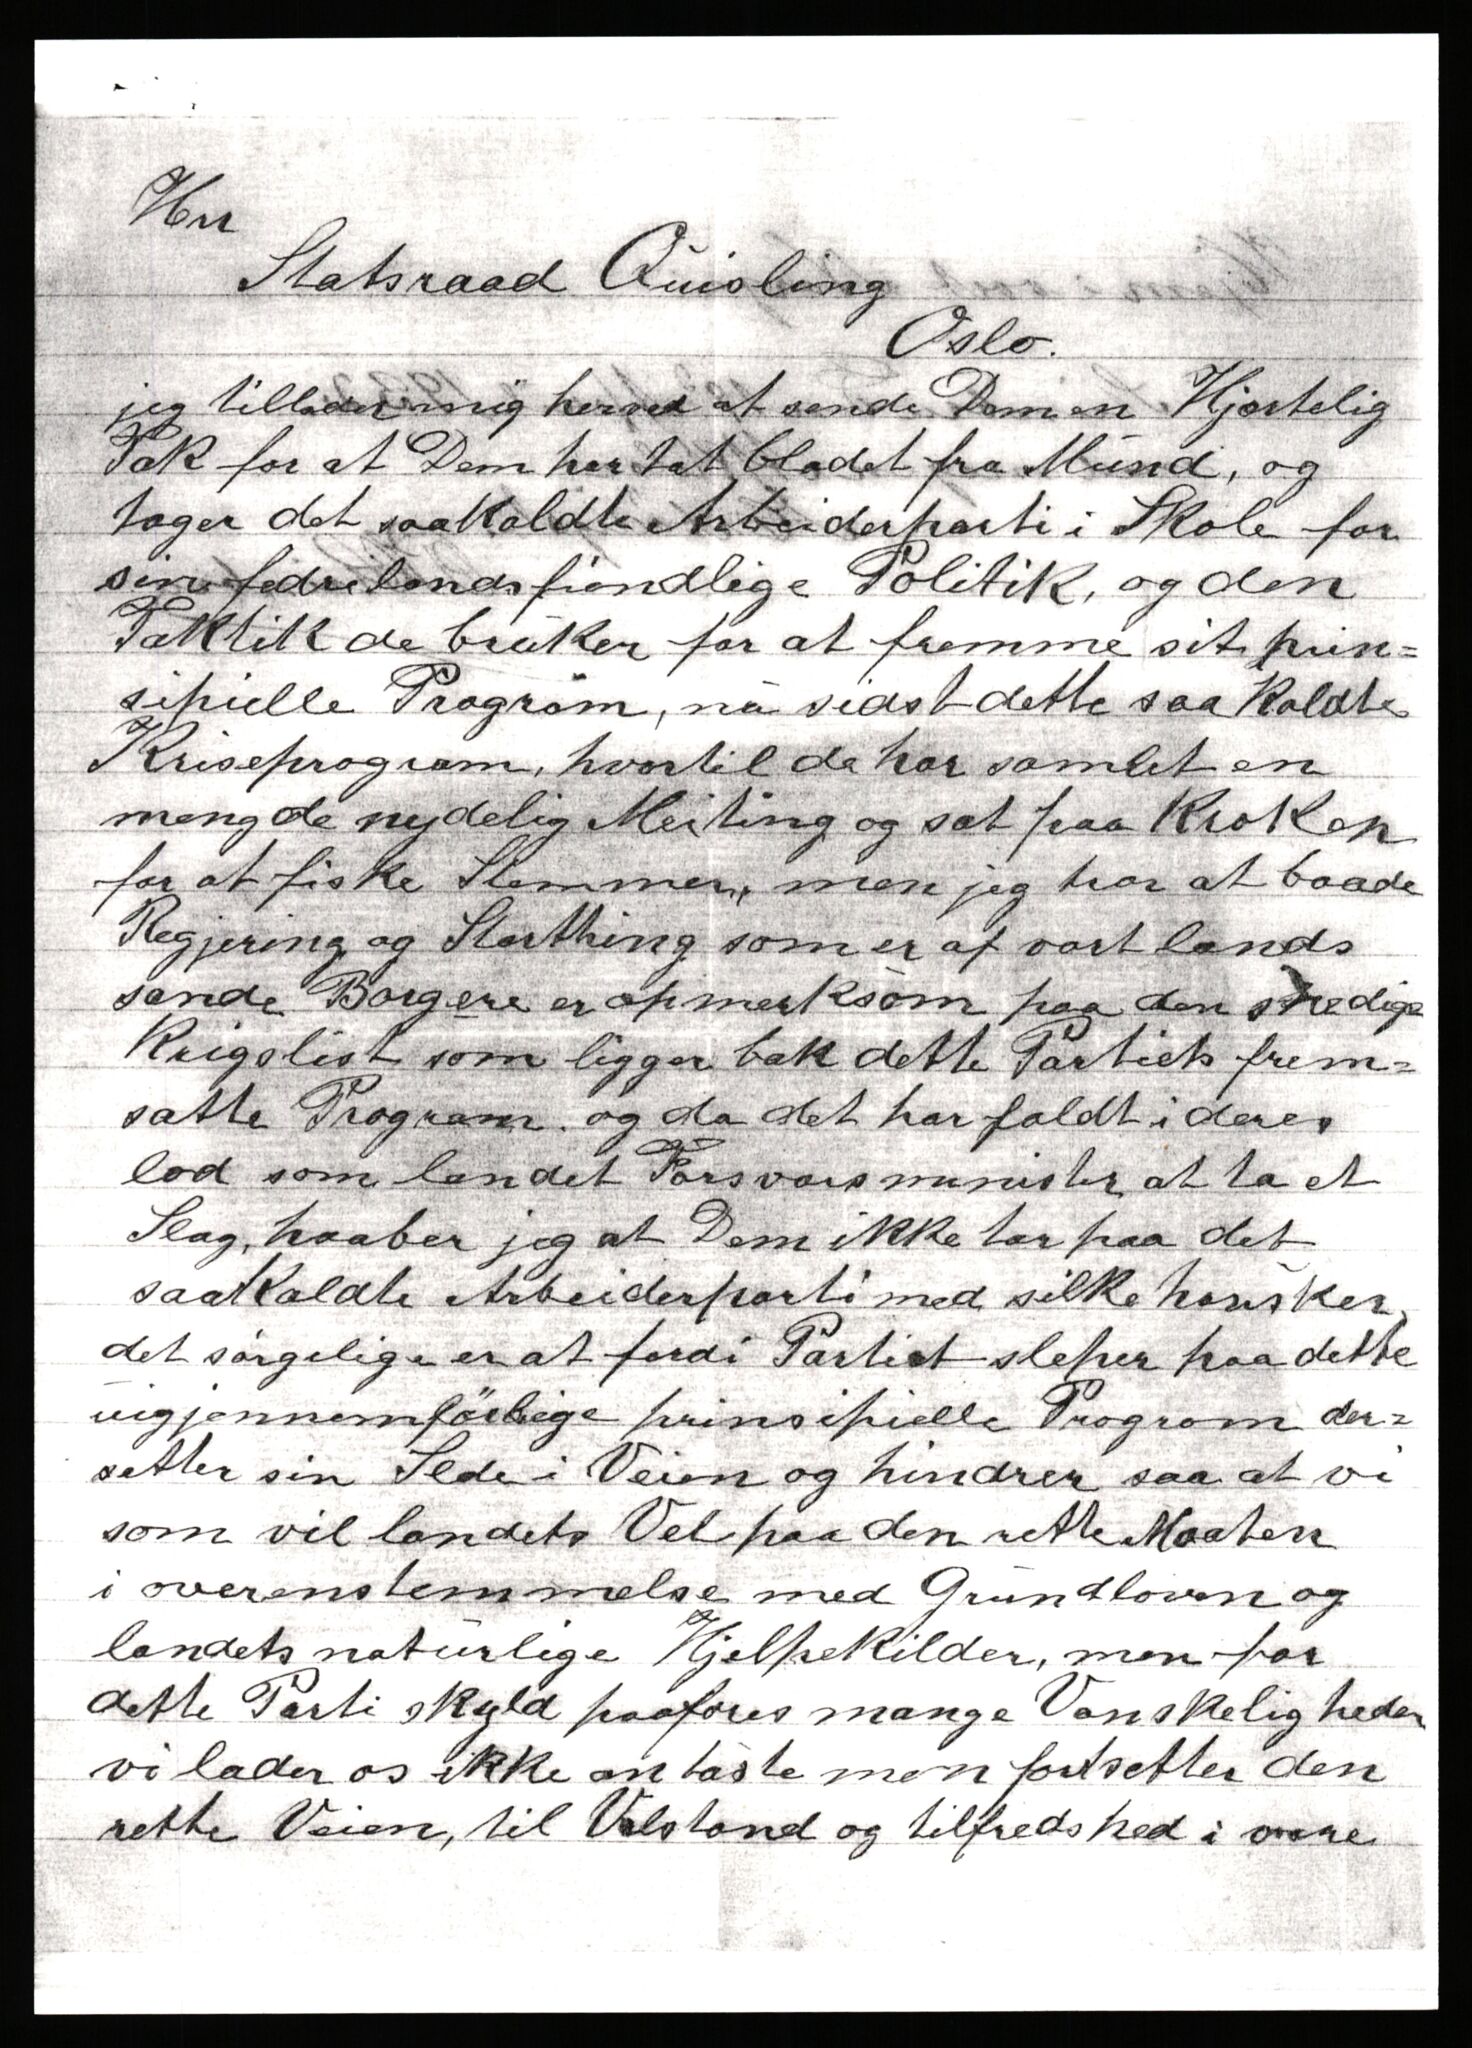 Herr
Statsraad Quisling
Oslo.
jeg tillader mig herved at sende Dem en Hjertelig
Tak for at Dem har tat bladet fra Mund, og
tager det saakaldte Arbeiderparti i Skole for
sin fedrelandsfiendlige Politik, og den
Taktik de bruker for at fremme sit prin=
sipielle Program, nu sidst dette saa kaldte
Kriseprogram, hvortil de har samlet en
mengde nydelig Meiting og sat paa Kroken
for at fiske Stemmer, men jeg tror at baade
Regjering og Storthing som er af vort lands
sande Borgere er opmerksom paa den snedige
Krigslist som ligger bak dette Partiets frem=
satte Program. og da det har faldt i deres
lod som landet Forsvarsminister at ta et
Slag, haaber jeg at Dem ikke tar paa det
saakaldte Arbeiderparti med silke hansker,
det sørgelige er at fordi Partiet sleper paa dette
uigjennemførlige prinsipielle Program der=
setter sin Slede i Veien og hindrer saa at vi
som vil landets Vel paa den rette Maaten
i overenstemmelse med Grundloven og
landets naturlige Hjelpekilder, men for
dette Parti skyld paaføres mange Vanskeligheder
vi lader os ikke antaste men fortsetter den
rette Veien, til Velstand og tilfredshed i vore